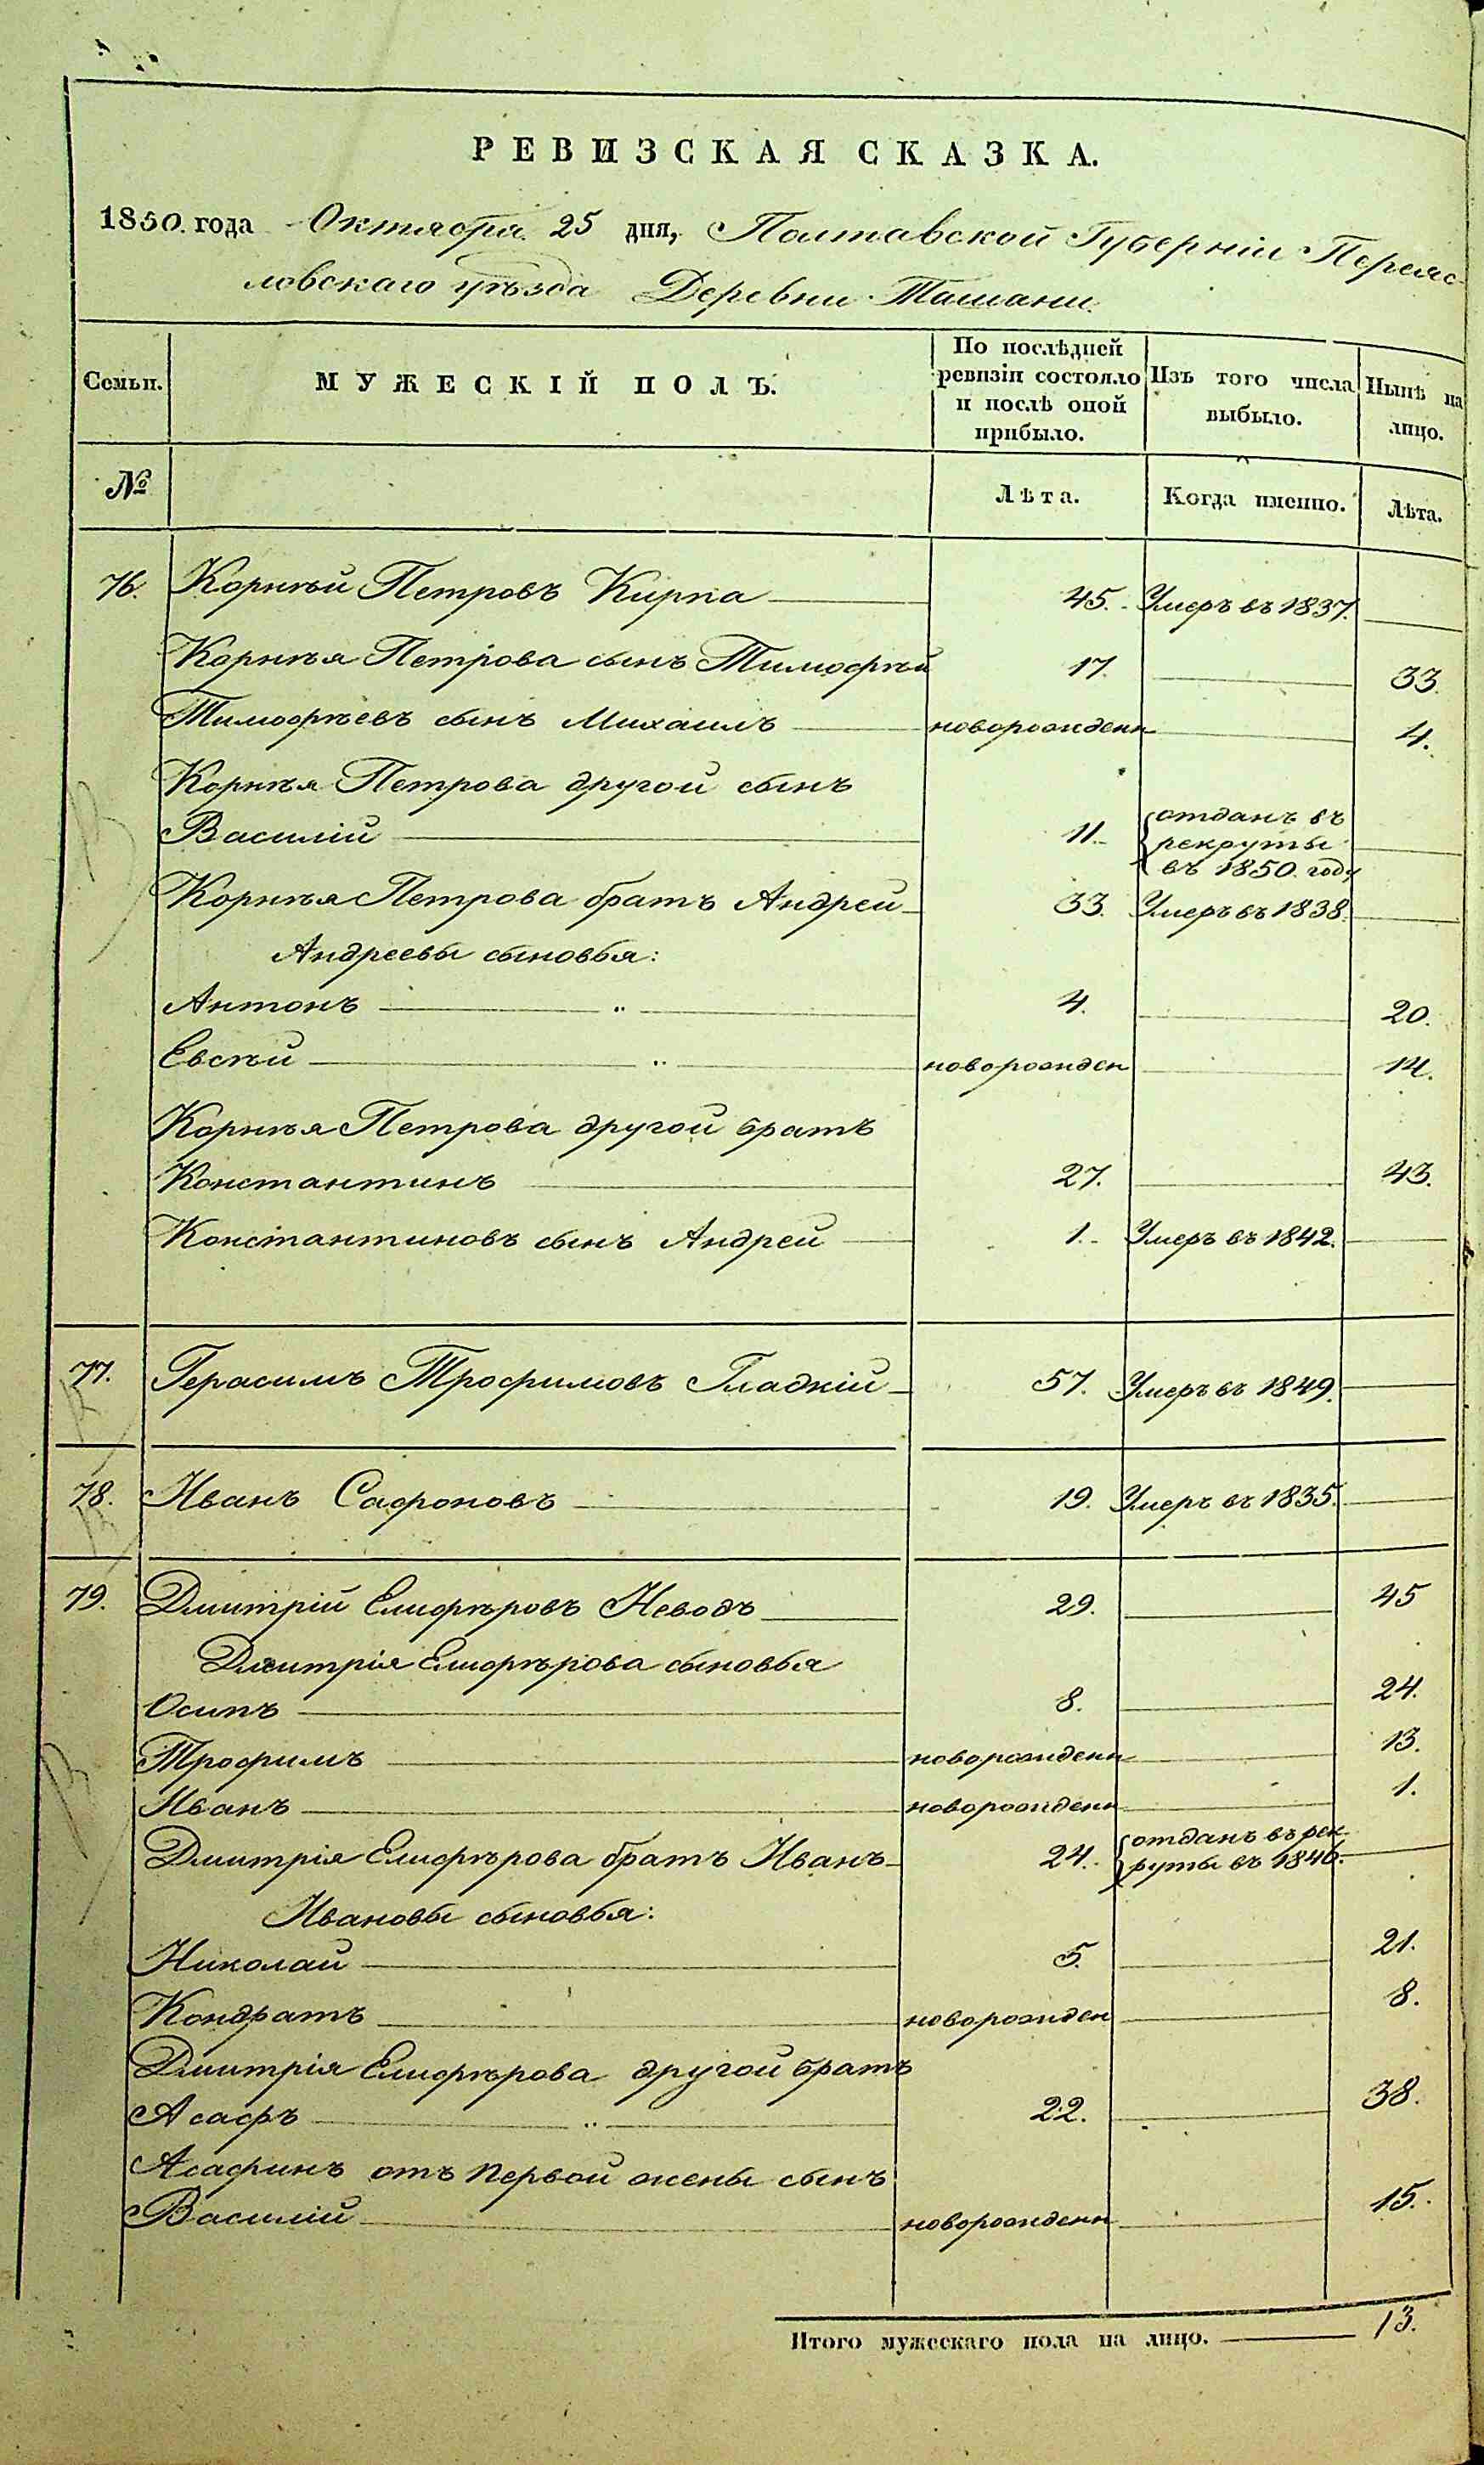 РЕВИЗСКАЯ СКАЗКА.
1850. года Октября 25 дня, Полтавской Губерніи Переяс-
ловскаго уѣзда Деревни Ташани.
Семьи. МУЖЕСКІЙ ПОЛЪ. По послѣдней ревизіи состояло и послѣ оной прибыло. Изъ того числа выбыло. Нынѣ на лицо.
№ Лѣта. Когда именно. Лѣта.
76. Корнѣй Петровъ Кирпа 45. Умеръ въ 1837.
Корнѣя Петрова сынъ Тимофѣй 17. 33.
Тимофѣевъ сынъ Михаилъ новорожденн 4.
Корнѣя Петрова другой сынъ
Василій 11. отданъ въ рекруты въ 1850. году
Корнѣя Петрова братъ Андрей 33. Умеръ въ 1838.
Андреевы сыновья:
Антонъ " 4. 20.
Евсѣй " новорожден 14.
Корнѣя Петрова другой братъ
Константинъ 27. 43.
Константиновъ сынъ Андрей 1. Умеръ въ 1842.
77. Герасимъ Трофимовъ Гладкій 57. Умеръ въ 1849.
78. Иванъ Сафроновъ 19. Умеръ въ 1835.
79. Дмитрій Елифѣровъ Неводъ 29. 45
Дмитрія Елифѣрова сыновья
Осипъ 8. 24.
Трофимъ новорожденн 13.
Иванъ новорожденн 1.
Дмитрія Елифѣрова братъ Иванъ 24. отданъ въ рек-
руты въ 1840.
Ивановы сыновья:
Николай 5. 21.
Кондратъ новорожден 8.
Дмитрія Елифѣрова другой братъ
Асафъ " 22. 38.
Асафинъ отъ первой жены сынъ
Василій новорожденн 15.
Итого мужескаго пола на лицо. 13.